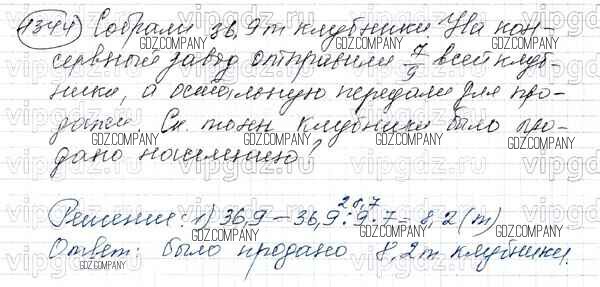 1344 Собрали 36,9 т клубники. На кон-
сервный завод отправили 7/9 всей клуб-
ники, а остальную передали для про-
дажи. Ск. тонн клубники было про-
дано населению?
28,7
Решение: 1) 36,9 - 36,9 : 9 · 7 = 8,2 (т)
Ответ: было продано 8,2 т клубники.
GDZ.COMPANY
vipgdz.ru